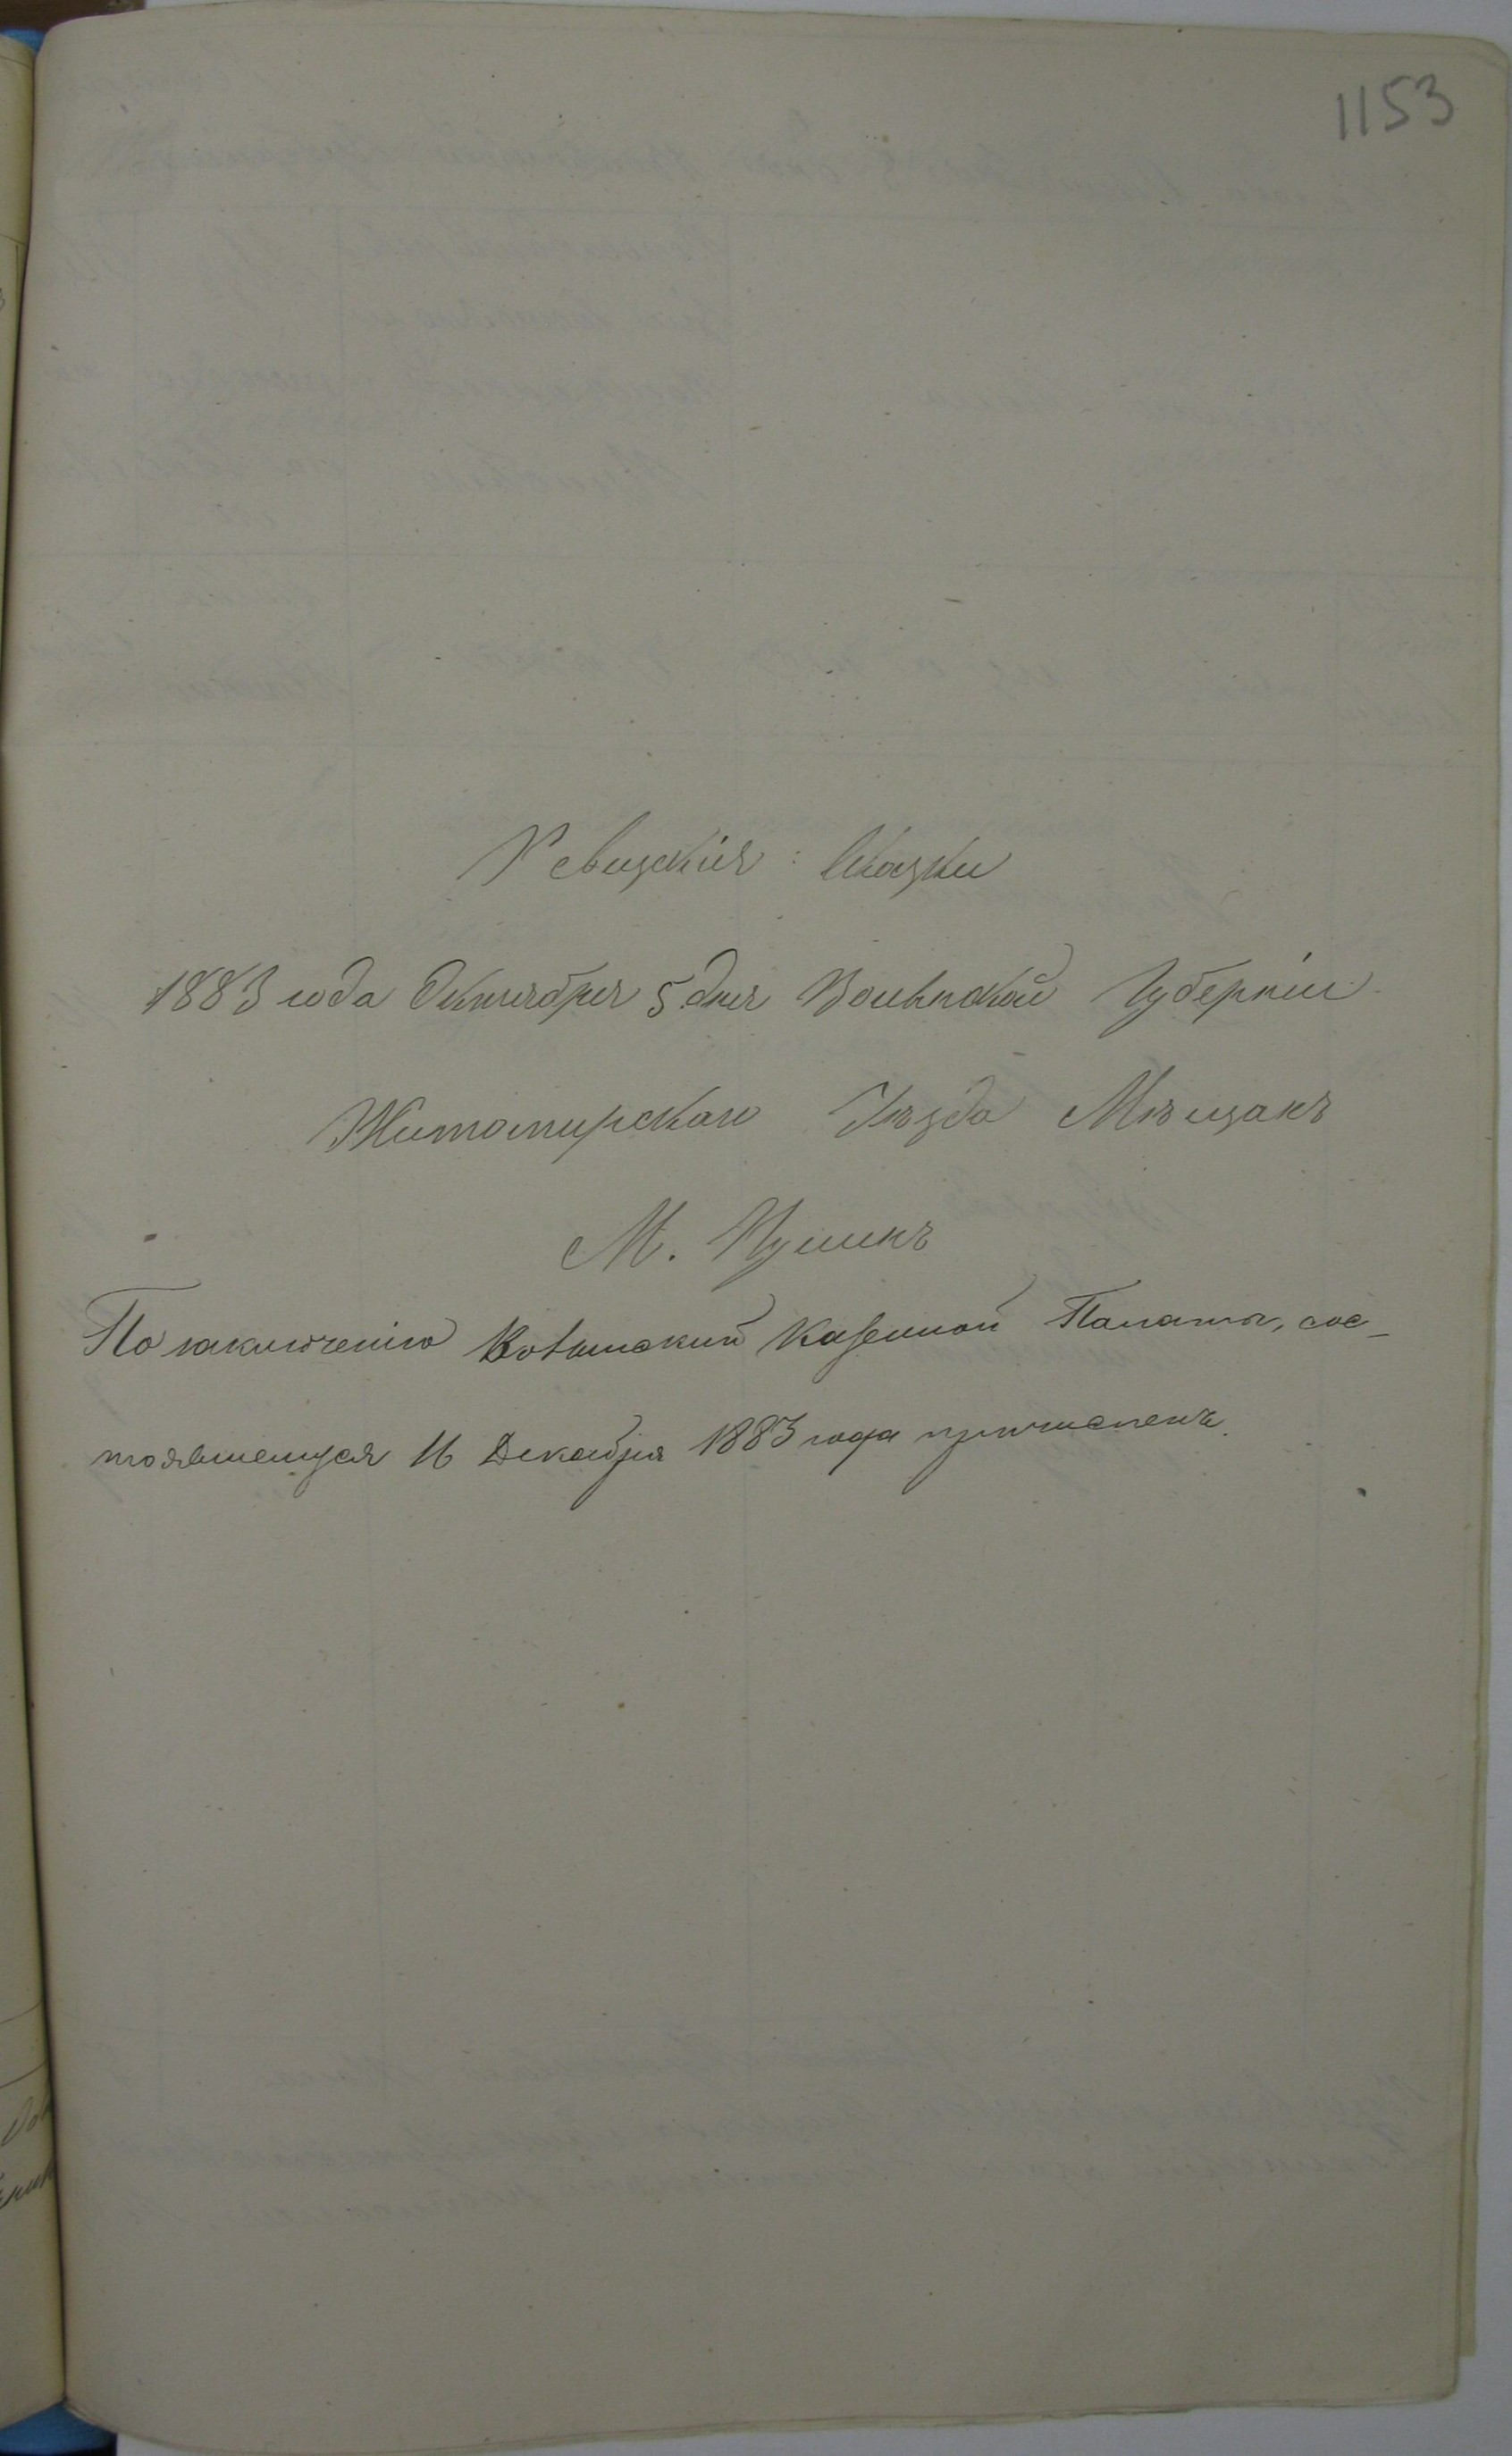 1153
Ревизкія Сказки
1883 года Октября 5 дня Волынской Губерніи
Житомирскаго Уѣзда Мѣщанъ
М. Пулинъ
По заключенію Волынский Казенной Палаты, сос-
тоявшемуся 16 Декабря 1883 года причисленъ.